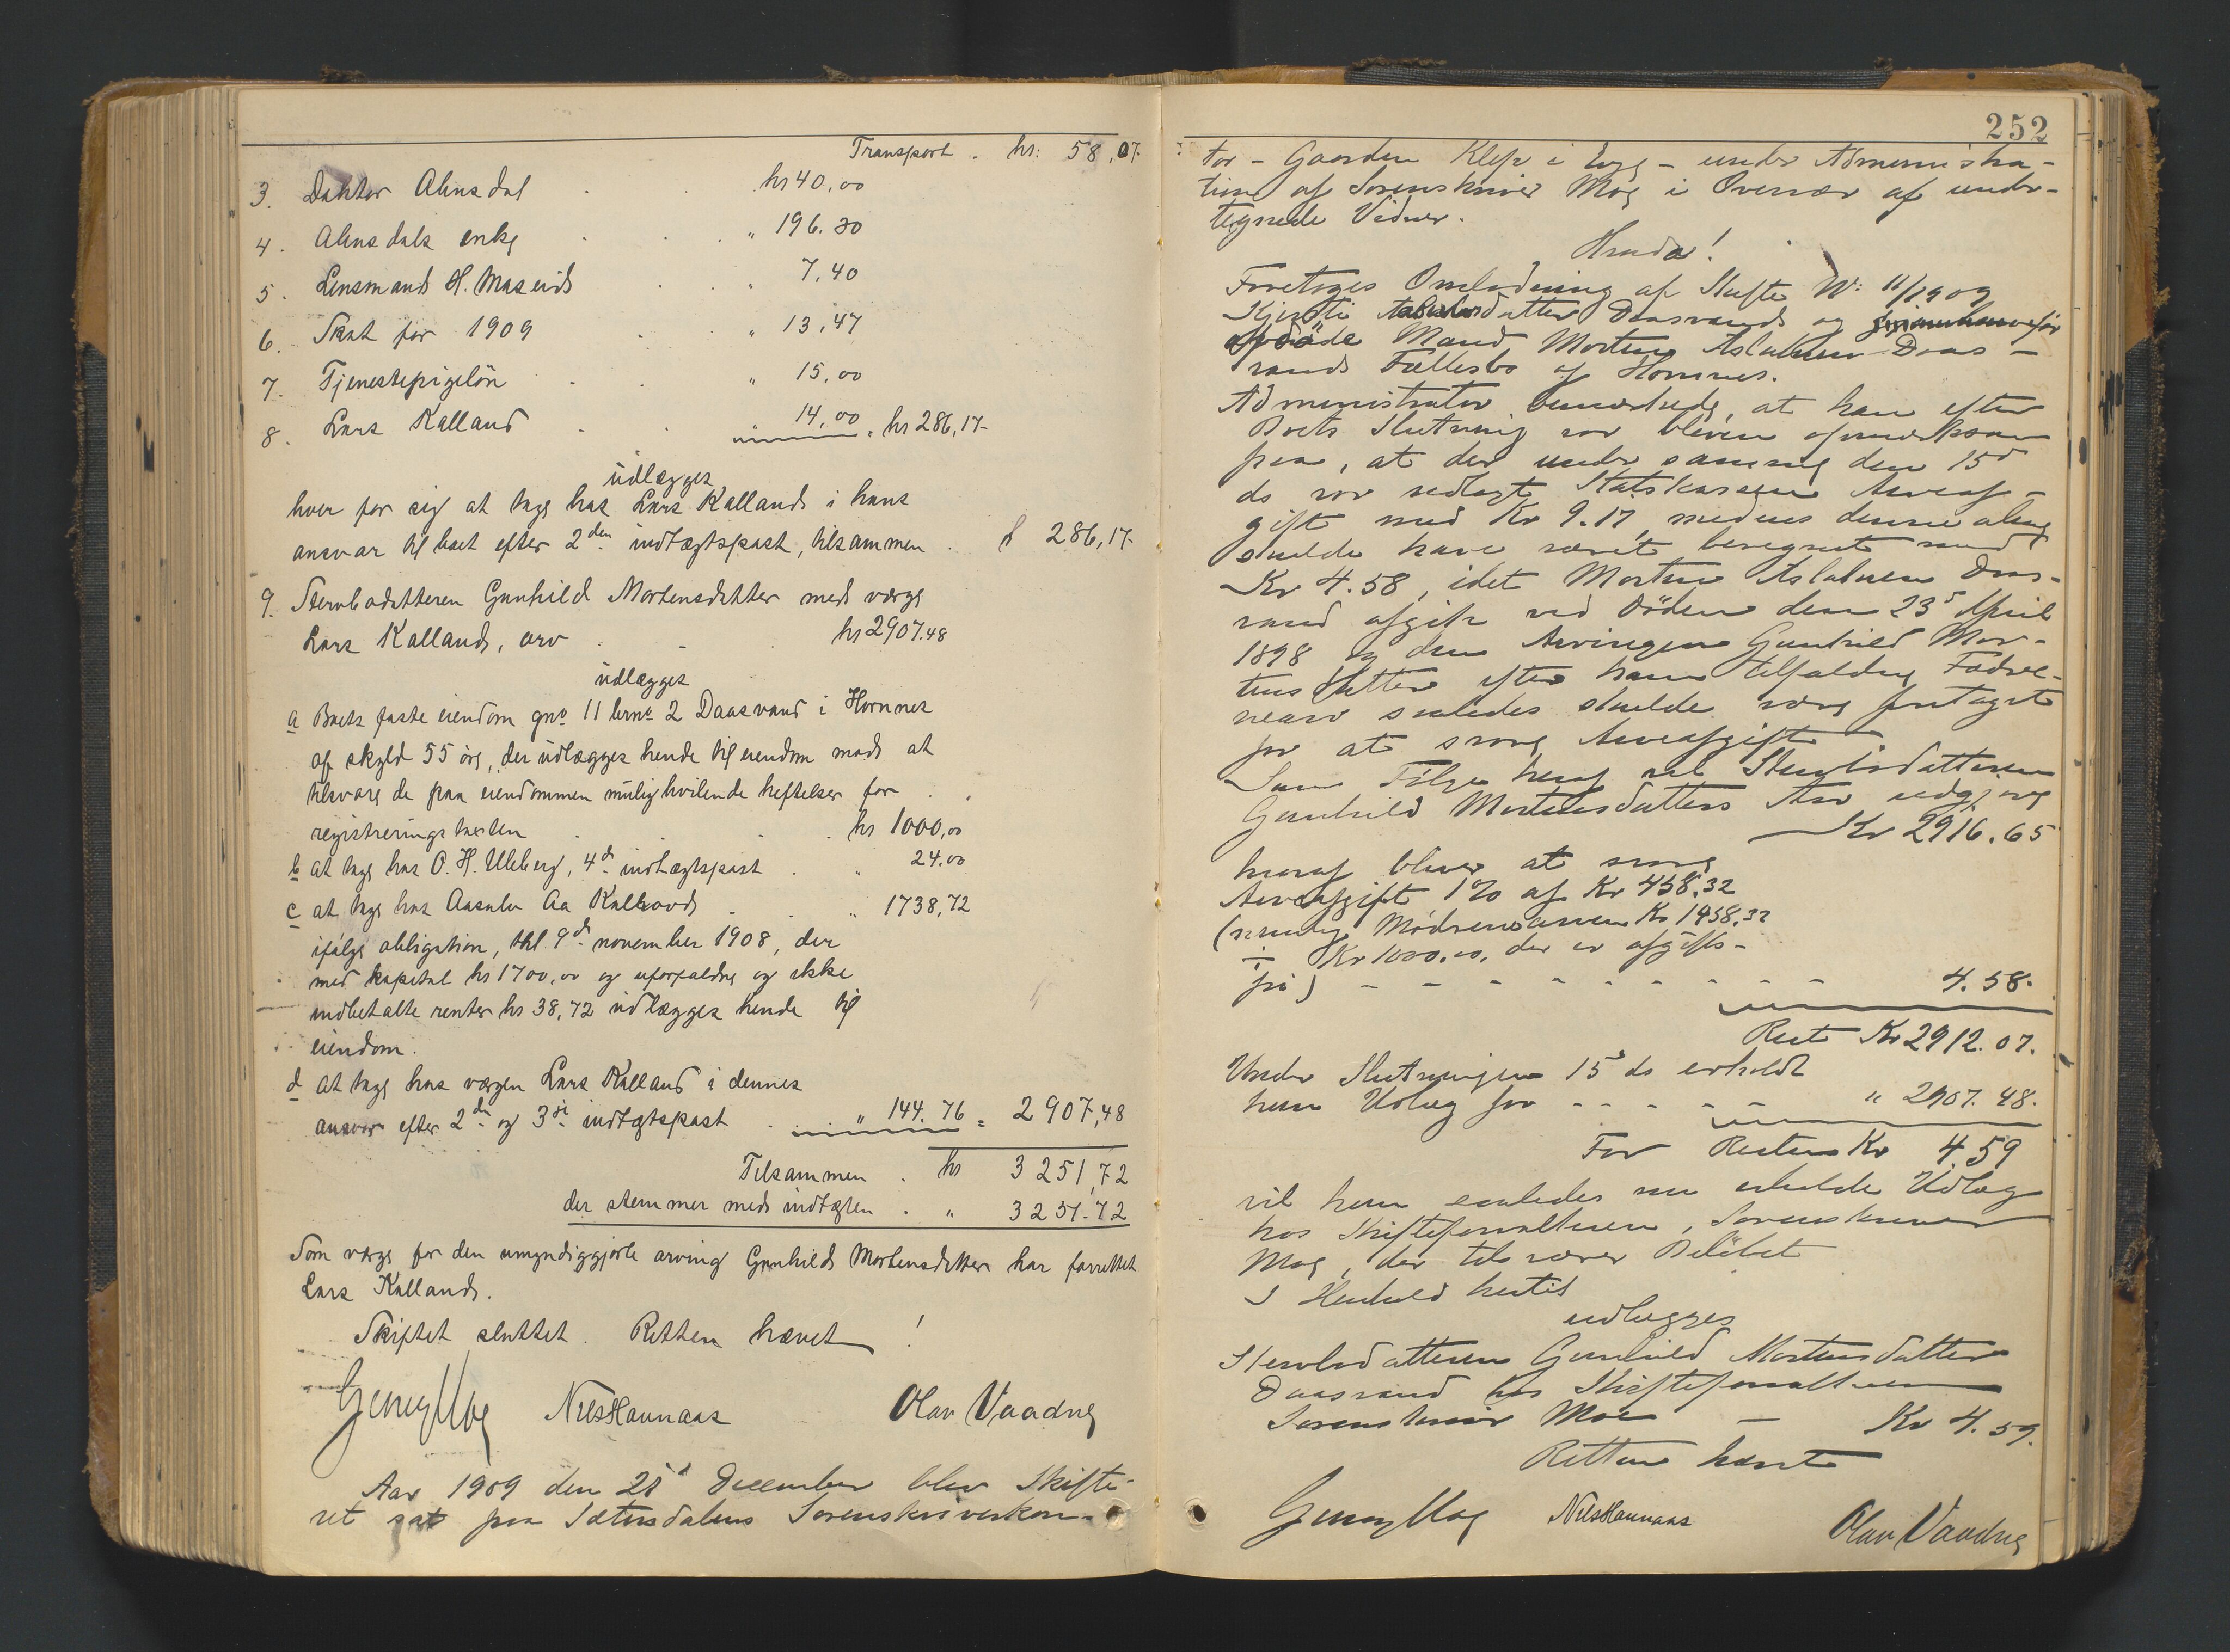 Transport . kr: 58,07
3. Doktor Almsdal . . kr 40,00
4. Almsdals enke . . . " 196.30
5. Lensmand H. Maseid . . " 7,40
6. Skat for 1909 . . " 13,47
7. Tjenestepigeløn . . " 15,00
8. Lars Kalland . . " 14,00 = kr 286,17
udlægges
hver for sig at tage hos Lars Kalland i hans
ansvar til boet efter 2den indtægtspost, tilsammen . " 286,17
9. Stervbodatteren Gunhild Mortensdatter med værge
Lars Kalland, arv . . . kr 2907.48
udlægges
a Boets faste eiendom gno 11 brno 2 Daasvand i Hornnes
af skyld 55 øre, der udlægges hende til eiendom mod at
tilsvare de paa eiendommen mulig hvilende heftelser for . .
registreringstaxten . . . kr 1000,00
b at tage hos O. H. Uleberg, 4de indtægtspost . " 24.00
c at tage hos Aasulv Aa Kallhovd . . " 1738,72
ifølge obligation, thl. 9de november 1908, der
med kapital kr 1700,00 og uforfaldne og ikke
indbetalte renter kr 38,72 udlægges hende til
eiendom.
d at tage hos værgen Lars Kalland i dennes
ansvar efter 2den og 3die indtægtspost . " 144.76 = 2907,48
Tilsammen . kr 3251,72
der stemmer med indtægten . " 3251.72
Som værge for den umyndiggjorte arving Gunhild Mortensdatter har forrettet
Lars Kalland.
Skiftet sluttet. Retten hævet!
Nils Haunaas Olav Vaadne
Aar 1909 den 21d December blev Skifte-
ret sat paa Sætersdalens Sorenskriverkon-
252
tor - Gaarden Klep i Evje - under Administra-
tion af Sorenskriver Moe i Overvær af under-
tegnede Vidner.
Hvorda!
Foretoges Omlodning af Skifte No 11/1909
Kjersti datter Daasvand og før
afdøde Mand Morten Aslaksen Daas-
vands Fællesbo af Hornnes.
Administrator bemærkede, at han efter
Boets Slutning var bleven opmærksom
paa, at der under samme den 15d
ds var udlagt Statskassen Arveaf-
gift med Kr 9.17, medens denne alene
skulde have været beregnet med
Kr 4.58, idet Morten Aslaksen Daas-
vand afgik ved Døden den 23d April
1898 og den Arvingen Gunhild Mor-
tensdatter efter ham tilfaldne Fædre-
nearv saaledes skulde være fritaget
for at svare Arveafgift.
Som Følge heraf vil Stervbodatteren
Gunhild Mortensdatters Arv udgjøre
Kr 2916.65
hvoraf bliver at svare
Arveafgift 1% af Kr 458.32
(nemlig Mødrenearven Kr 1458.32
÷ Kr 1000.00, der er afgifts-
fri) - - - - - - - - - 4.58.
Rest Kr 2912.07.
Under Slutningen 15d ds erholdt
hun Udlæg for - - - - - " 2907.48.
For Resten Kr 4.59
vil hun saaledes nu erholde Udlæg
hos Skifteforvalteren, Sorenskriver
Moe, der tilsvarer Beløbet
I Henhold hertil
udlægges
Stervbodatteren Gunhild Mortensdatter
Daasvand hos Skifteforvalteren
Sorenskriver Moe - Kr 4.59.
Retten hævet
Nils Haunaas
Olav Vaadne